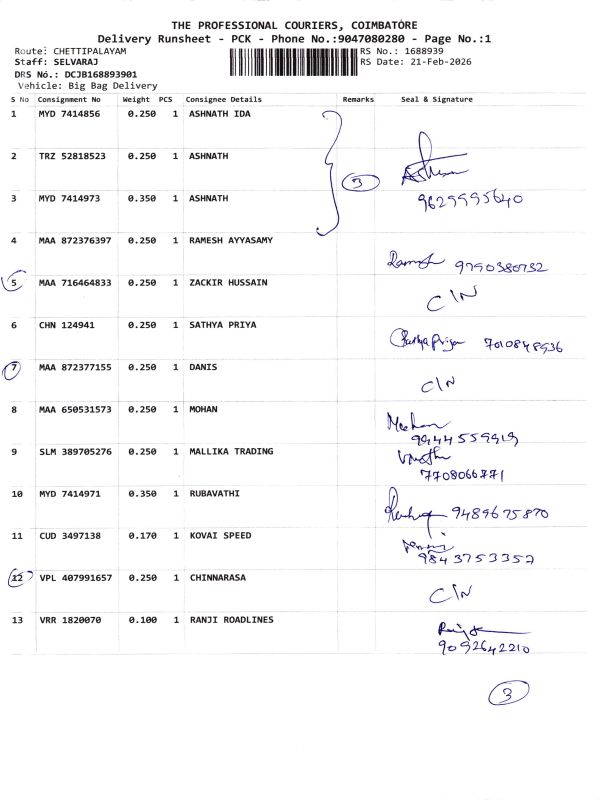 THE PROFESSIONAL COURIERS, COIMBATORE
Delivery Runsheet - PCK - Phone No.:9047080280 - Page No.:1
Route: CHETTIPALAYAM RS No.: 1688939
Staff: SELVARAJ RS Date: 21-Feb-2026
DRS No.: DCJB168893901
Vehicle: Big Bag Delivery
S No Consignment No Weight PCS Consignee Details Remarks Seal & Signature
1 MYD 7414856 0.250 1 ASHNATH IDA
2 TRZ 52818523 0.250 1 ASHNATH
3
3 MYD 7414973 0.350 1 ASHNATH
9629995640
4 MAA 872376397 0.250 1 RAMESH AYYASAMY
9790380732
5 MAA 716464833 0.250 1 ZACKIR HUSSAIN
C/N
6 CHN 124941 0.250 1 SATHYA PRIYA
7010848936
7 MAA 872377155 0.250 1 DANIS
C/N
8 MAA 650531573 0.250 1 MOHAN
9944559919
9 SLM 389705276 0.250 1 MALLIKA TRADING
7708066771
10 MYD 7414971 0.350 1 RUBAVATHI
9489675870
11 CUD 3497138 0.170 1 KOVAI SPEED
9843753357
12 VPL 407991657 0.250 1 CHINNARASA
C/N
13 VRR 1820070 0.100 1 RANJI ROADLINES
9092642210
3